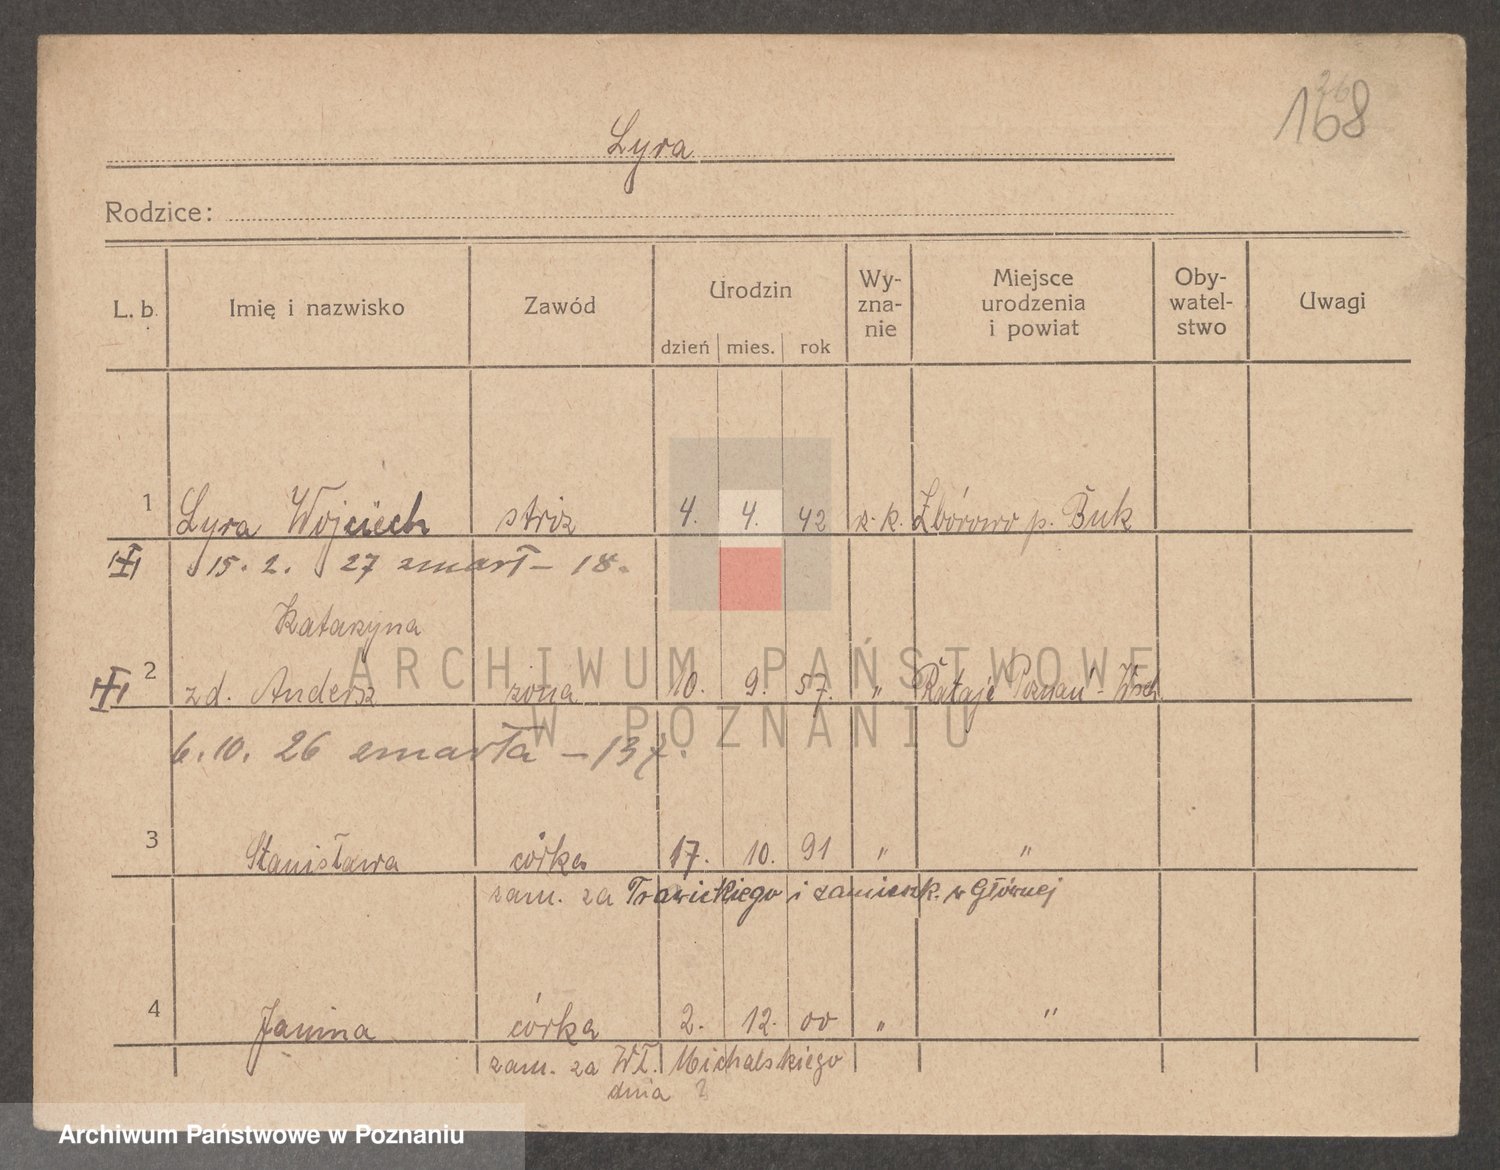 168
Lyra
Rodzice:
L. b. Imię i nazwisko Zawód Urodzin Wy-zna-nie Miejsce urodzenia i powiat Oby-watel-stwo Uwagi
dzień mies. rok
1 Lyra Wojciech stróż 4. 4. 42 r. k. Zborowo p. Buk
15. 2. 27 zmarł – 18.
Katarzyna
2 zd. Andersz żona 10. 9. 57. " Rataje Poznań - Wsch.
6. 10. 26 zmarła – 137.
3 Stanisława córka 17. 10. 91 " "
zam. za Trawickiego i zamieszk. w Głównej
4 Janina córka 2. 12. 00 " "
zam. za Wł. Michalskiego
dnia ?
ARCHIWUM PAŃSTWOWE
W POZNANIU
Archiwum Państwowe w Poznaniu